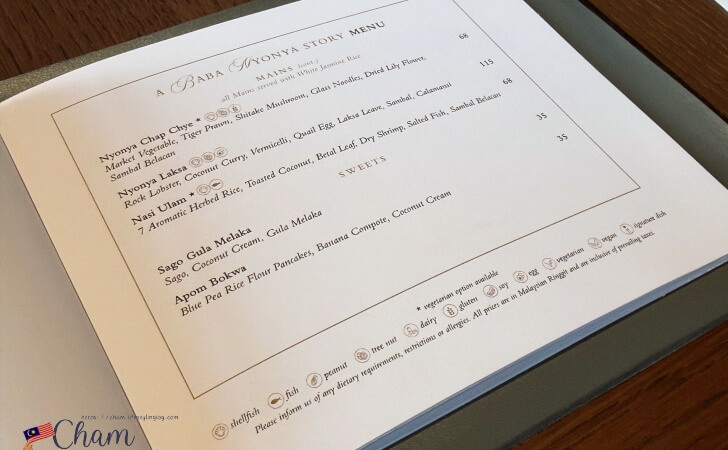 A BABA NYONYA STORY MENU
MAINS (cont.)
all Mains served with White Jasmine Rice
Nyonya Chap Chye * 68
Market Vegetable, Tiger Prawn, Shitake Mushroom, Glass Noodles, Dried Lily Flower,
Sambal Belacan
Nyonya Laksa 115
Rock Lobster, Coconut Curry, Vermicelli, Quail Egg, Laksa Leave, Sambal, Calamansi
Nasi Ulam * 68
7 Aromatic Herbed Rice, Toasted Coconut, Betal Leaf, Dry Shrimp, Salted Fish, Sambal Belacan
SWEETS
Sago Gula Melaka 35
Sago, Coconut Cream, Gula Melaka
Apom Bokwa 35
Blue Pea Rice Flour Pancakes, Banana Compote, Coconut Cream
* vegetarian option available
shellfish fish peanut tree nut dairy gluten soy egg vegetarian vegan signature dish
Please inform us of any dietary requirements, restrictions or allergies. All prices are in Malaysian Ringgit and are inclusive of prevailing taxes.
Cham